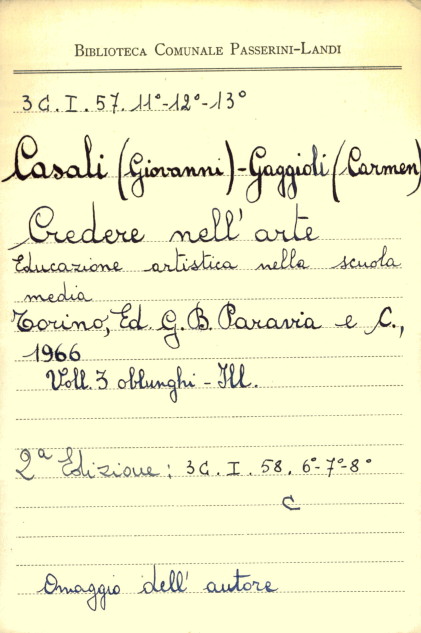 BIBLIOTECA COMUNALE PASSERINI-LANDI
3C.I.57.11°-12°-13°
Casali (Giovanni)-Gaggioli (Carmen)
Credere nell'arte
Educazione artistica nella scuola
media
Torino, Ed. G.B. Paravia e C.,
1966
Voll. 3 oblunghi - Ill.
2ª Edizione: 3C.I.58.6°-7°-8°
C
Omaggio dell'autore